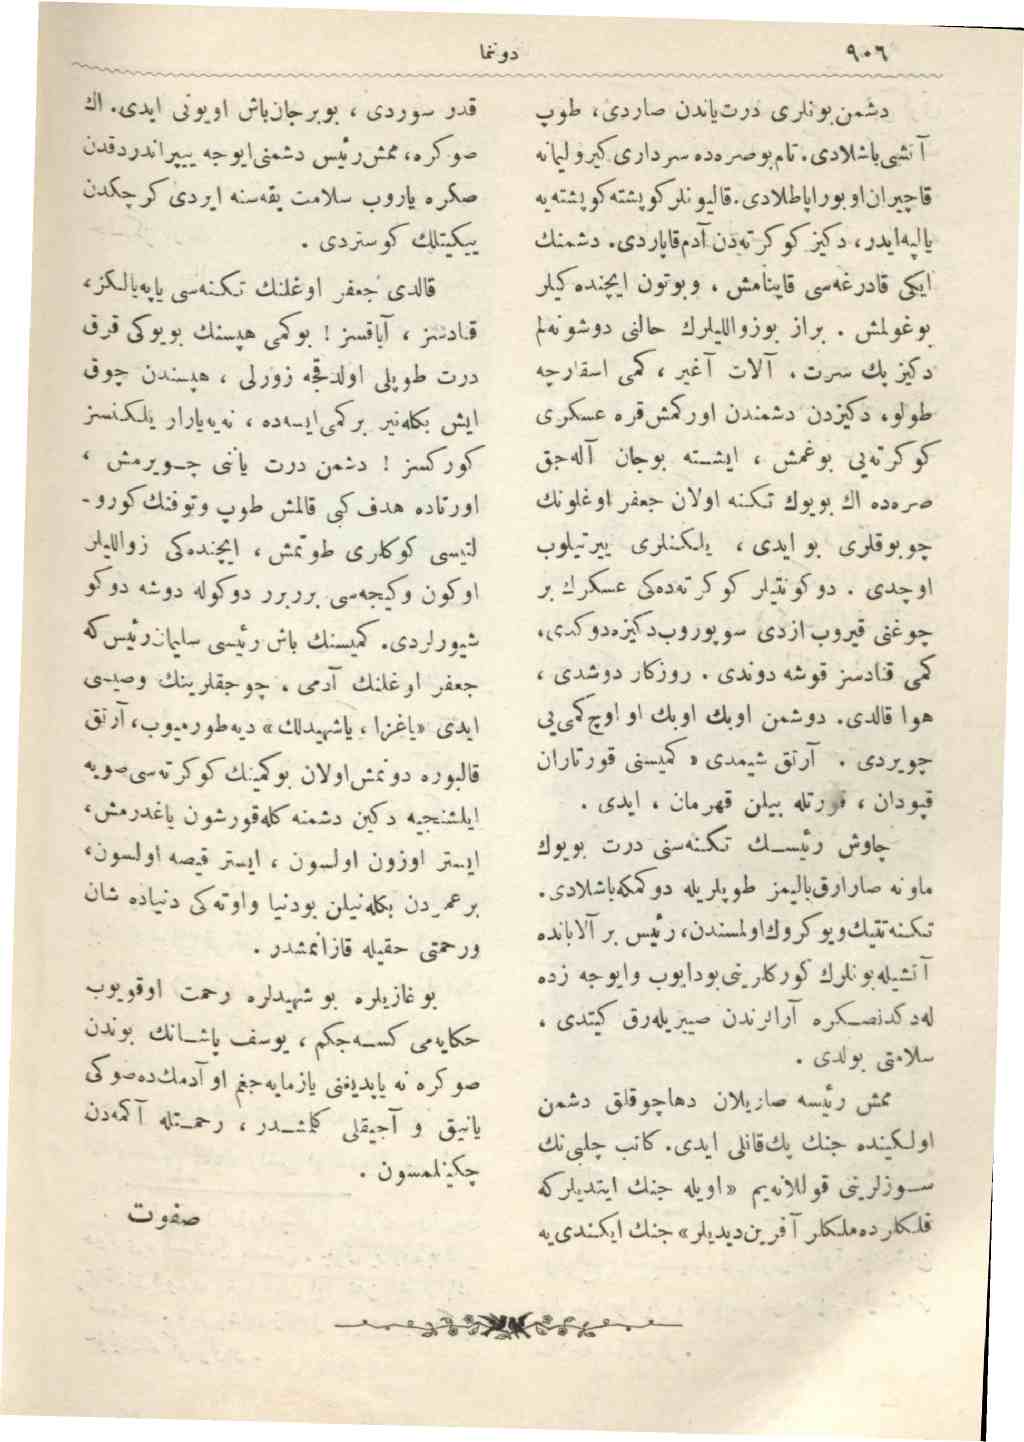 ٩٠٦
دونما
دشمن بونلری درت یاندن صاردی، طوپ
آتشی باشلادی. تام بو صره‌ده سرداری کیرو لیمانه
قاچیران اوبورا پاطلادی. قالیونلر کوپشته کوپشته‌یه
یالپه ایدر، دکیز کوکرته‌دن آدم قاپاردی. دشمنك
ایکی قادرغه‌سی قاینامش ، و بوتون ایچنده کیلر
بوغولمش . براز بوزواللیلرك حالنی دوشونه‌لم
دکیز پك سرت، آلات آغیر ، کمی اسقارچه
طولو، دکیزدن دشمندن اورکمش قره عسکری
کوکرته‌یی بوغمش ، ایشته بوجان آله‌جق
صره‌ده اك بویوك تكنه اولان جعفر اوغلونك
چوبوقلری بو ایدی ، یلکنلری ییرتیلوب
اوچدی . دوکونتیلر کوکرته‌ده‌کی عسکرك بر
چوغنی قیروب ازدی سوپوروب دکیزه دوکدی،
کمی قنادسز قوشه دوندی . روزکار دوشدی ،
هوا قالدی. دوشمن اوبك اوبك او اوچ کمی‌یی
چویردی . آرتق شیمدی « کمیسنی قورتاران
قپودان ، قورتله بیلن قهرمان ، ایدی .
چاوش رئیسـك تكنه‌سنی درت بویوك
ماونه صارارق بالیمز طوپلریله دوکمکه باشلادی.
تكنه تتیك و یوکروك اولمسندن، رئیس بر آلابانده
آتشیله بونلرك کورکلرینی بودایوب و ایوجه زده
له‌دکدنصکره آرالرندن صییریله‌رق کیتدی ،
سلامتی بولدی .
ممش رئیسه صاریلان دها چوقلق دشمن
اولـکینده جنك پك قانلی ایدی. کاتب چلبی‌نك
سـوزلرینی قوللانه‌یم « اویله جنك ایتدیلر که
فلـکلرده ملـکلر آفرین دیدیلر » جنك ایکـندی‌یه
قدر سوردی ، بو بر جان‌باش اویونی ایدی. اك
صوکره، ممش رئیس دشمنی ایوجه ییپراندردقدن
صکره یاروب سلامت یقه‌سنه ایردی کرچکدن
ییکیتلك کوستردی .
قالدی جعفر اوغلنك تـکنه‌سی یاپه‌یالـکز،
قنادسز ، آیاقسز ! بوکمی هپسنك بویوکی قرق
درت طوپلی اولدقجه زورلی ، هپسندن چوق
ایش بکله‌نیر بر کمی ایسه‌ده ، نه‌یه یارار یلـکنسز
کورکسز ! دشمن درت یاننی چـویرمش ،
اورتاده هدف کبی قالمش طوپ وتوفنك کورو-
لتیسی کوکلری طوتمش ، ایچنده‌کی زواللیلر
اوکون وکیجه‌سی برربرر دوکوله دوشه دوکو
شیورلردی. کمیسنك باش رئیسی سلیمان رئیس که
جعفر اوغلنك آدمی ، چوجقلرینك وصیـی
ایدی «یاغزا ، یاشهیدلك» دیه طورمیوب، آرتق
قالبوره دونمش اولان بوکمینك کوکرته‌سی صویه
ایلشنجیه دکین دشمنه کله قورشون یاغدرمش،
ایستر اوزون اولسون ، ایستر قیصه اولسون،
برعمردن بکله‌نیلن بودنیا واوته‌کی دنیاده شان
ورحمتی حقیله قازانمشدر .
بو غازیلره بو شهیدلره رحمت اوقویوب
حکایه‌می کسـه‌جکم ، یوسف پاشـانك بوندن
صوکره نه یاپدیغنی یازمایه‌جغم او آدمك ده صوکی
یانیق و آجیقلی کلمشـدر ، رحمـتله آکمه‌دن
چکینلمسون .
صفوت